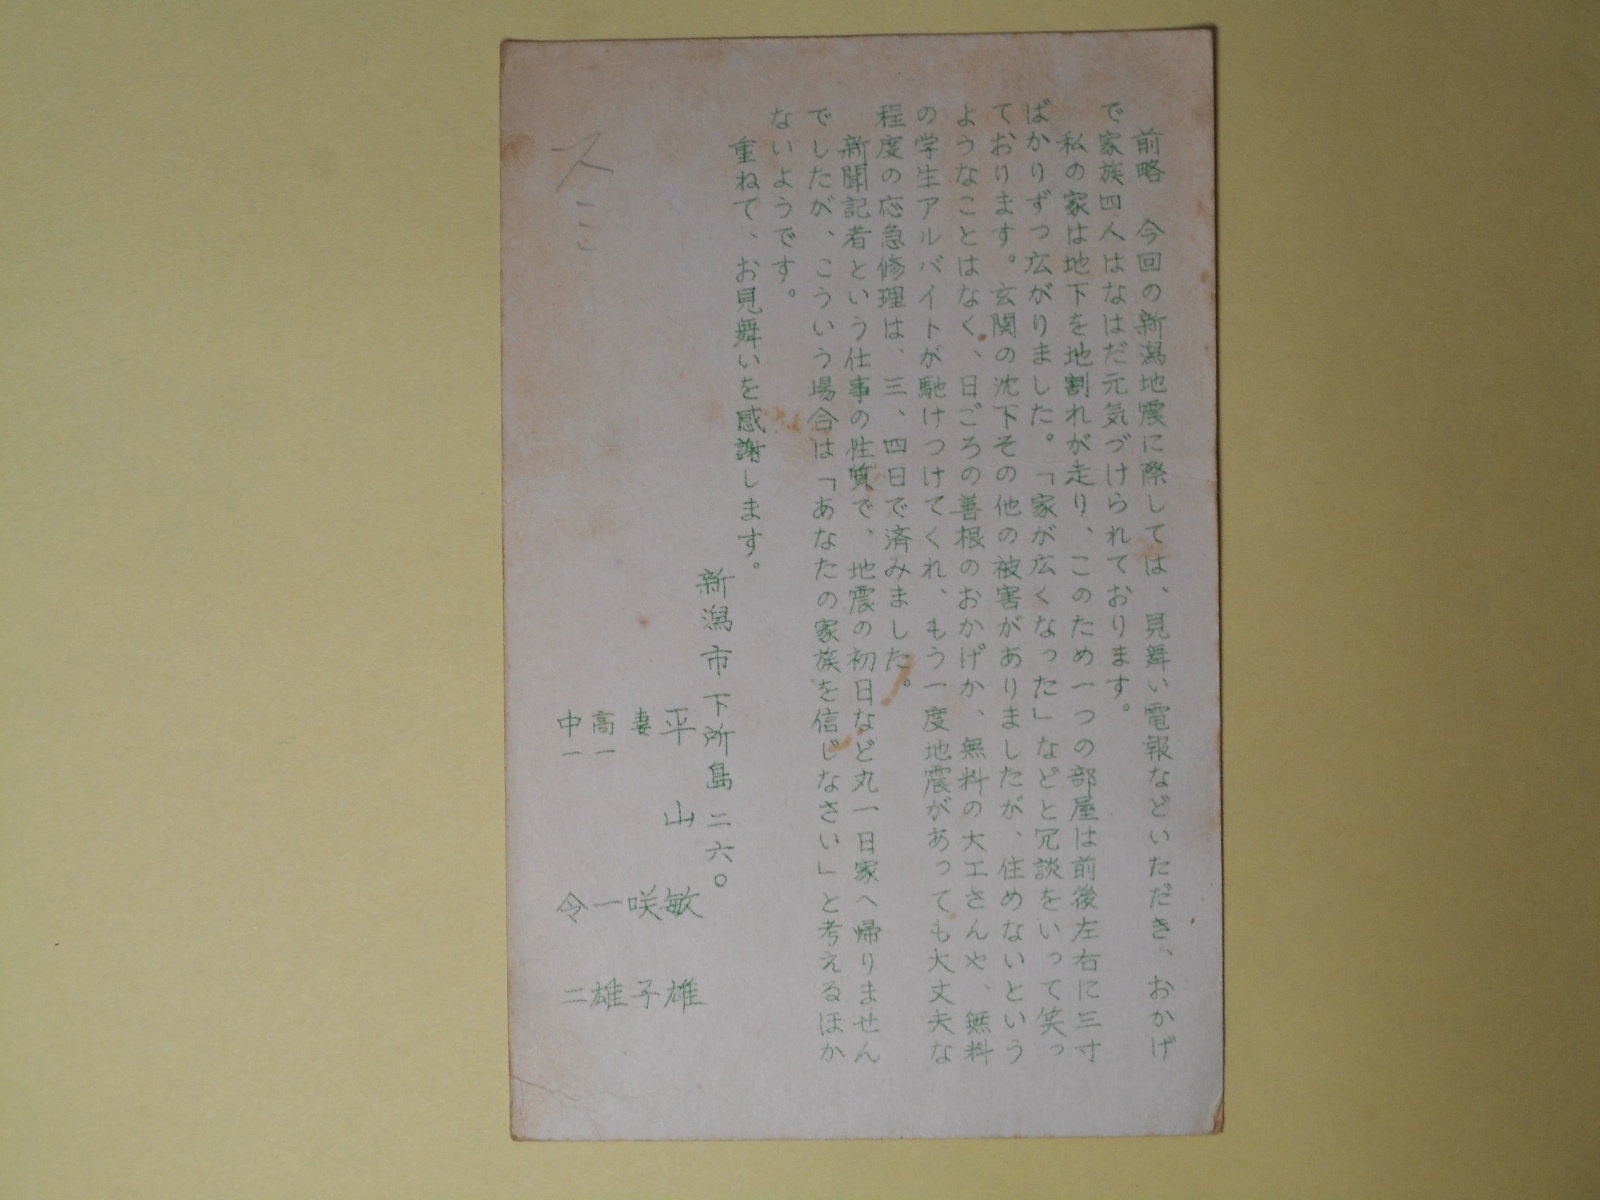 前略　今回の新潟地震に際しては、見舞い電報などいただき、おかげ
で家族四人はなはだ元気づけられております。
私の家は地下を地割れが走り、このため一つの部屋は前後左右に三寸
ばかりずつ広がりました。「家が広くなった」などと冗談をいって笑っ
ております。玄関の沈下その他の被害がありましたが、住めないという
ようなことはなく、日ごろの善根のおかげか、無料の大工さんや、無料
の学生アルバイトが馳けつけてくれ、もう一度地震があっても大丈夫な
程度の応急修理は、三、四日で済みました。
新聞記者という仕事の性質で、地震の初日など丸一日家へ帰りません
でしたが、こういう場合は「あなたの家族を信じなさい」と考えるほか
ないようです。
重ねて、お見舞いを感謝します。
新潟市下所島二六〇
平山敏雄
妻　咲子
高一　一雄
中一　令二